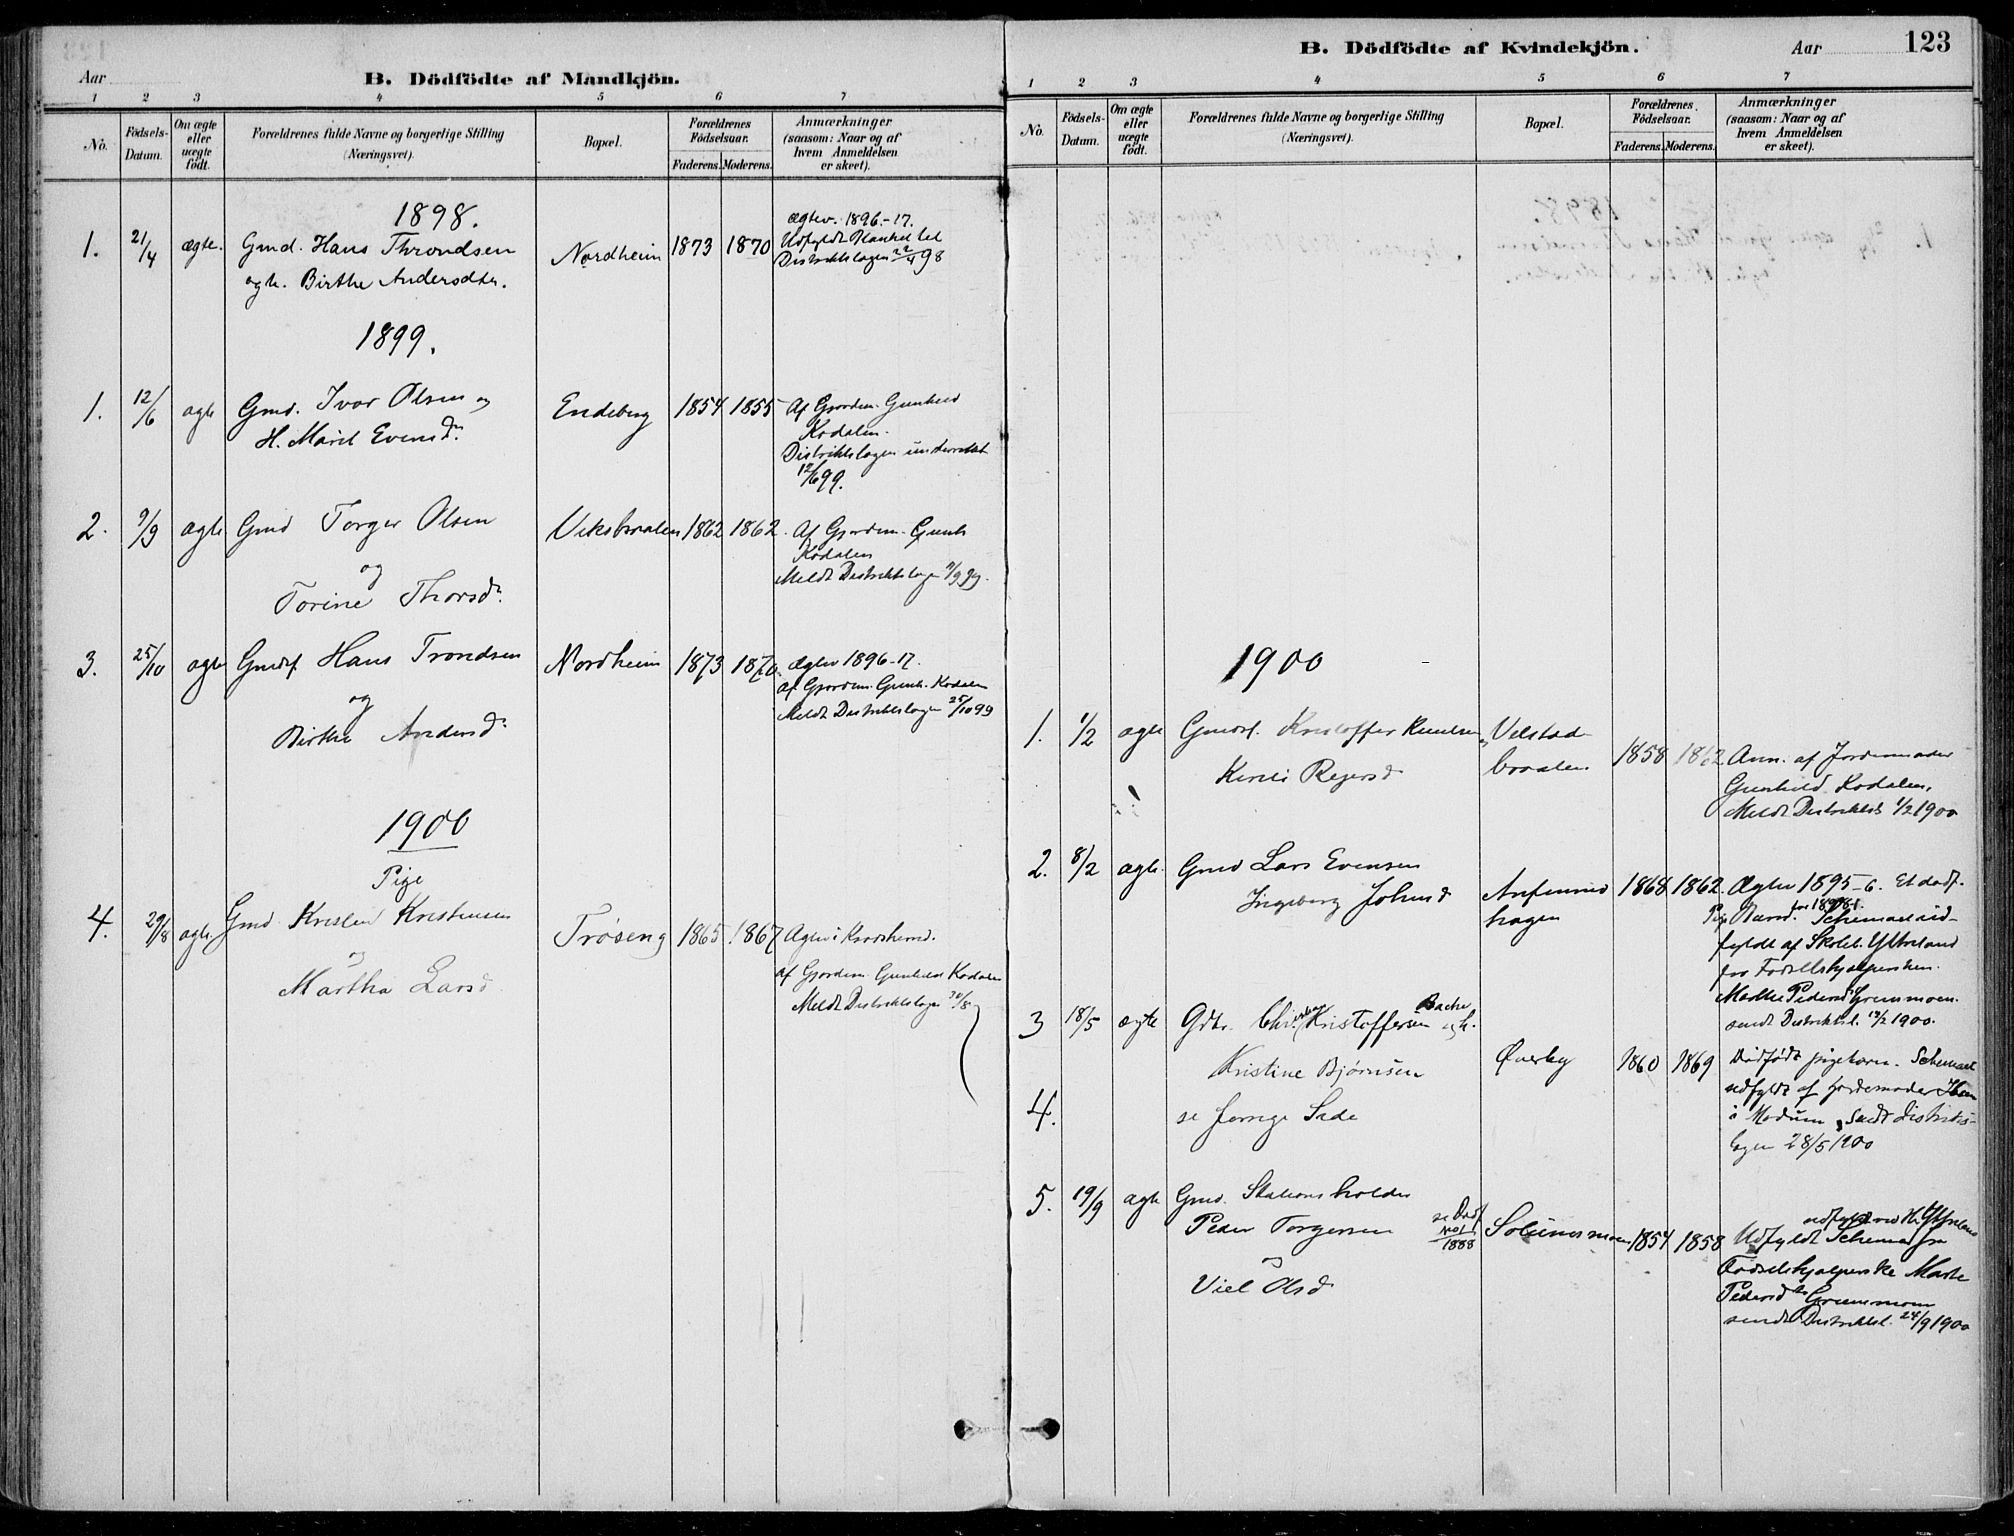 Aar
B. Dödfödte af Mandkjön.
1 2 3 4 5 6 7
No. Födsels-Datum. Om ægte eller uægte födt. Forældrenes fulde Navne og borgerlige Stilling (Næringsvei). Bopæl. Forældrenes Födselsaar. Faderens. Moderens. Anmærkninger (saasom: Naar og af hvem Anmeldelsen er skeet).
1898.
1. 21/4 ægte. Gmd. Hans Throndsen Nordheim 1873 1870 ægtev. 1896-17.
ogh. Birthe Andersdtr. Udfyldt Blanket til
Distriktslægen 22/4 98
1899.
1. 12/6 ægte Gmd. Ivar Olsen og Endeberg 1854 1855 Af Gjordem. Gunhild
H. Marit Evensdr. Kodalen.
Distriktslægen underrettet
12/6 99.
2. 9/9 ægte Gmd Torger Olsen Viksbraaten 1862 1862 Af Gjordem. Gunh.
og Kodalen
Torine Thorsdr. Meldt Distriktslægen 11/9 99.
3. 25/10 ægte Gmdsf Hans Trondsen Nordheim 1873 1870 Ægtev 1896-17.
og af Gjordem. Gunh. Kodalen
Birthe Andersdr. Meldt Distriktslægen 25/10 99
1900
Pige
4. 29/8 ægte. Gmd. Kristen Kristensen Trøseng 1865 1867 Ægtev i Kradsherred.
og af Gjordem. Gunhild Kodalen
Martha Larsd Meldt Distriktslægen 30/8
B. Dödfödte af Kvindekjön.
Aar
123
1 2 3 4 5 6 7
No. Födsels-Datum. Om ægte eller uægte födt. Forældrenes fulde Navne og borgerlige Stilling (Næringsvei). Bopæl. Forældrenes Födselsaar. Faderens. Moderens. Anmærkninger (saasom: Naar og af hvem Anmeldelsen er skeet).
1900
1. 1/2 ægte Gmdsf. Kristoffer Knudsen og Velstad-
braaten 1858 1862 Anm. af Jordemoder
Kirsti Reiersd Gunhild Kodalen,
Meldt Distriktsl 1/2 1900
2. 8/2 ægte. Gmd Lars Evensen
Ingeborg Johnsd hagen 1868 1862 Ægtev 1895-6. Et dødf.
Pige Barn. før 1898-1. Schema ud-
fyldt af Skolel. Ytteland
for Fødselshjælpersken
Marthe Pedersd Grønmoen.
sendt Distriktsl. 12/2 1900.
3 18/5 ægte Gdbr. Kristoffersen Bache ogh.
Kristine Bjørnsen Øverby 1860 1869 Dødfødt pigebarn. Schemaet
udfyldt af Jordemoder
i Modum, Sendt distrikts-
lægen 28/5 1900
4. se forrige Side
5. 19/9 ægte Gmd. Stationsholder
Peder Torgersen se Dødf No 1 1888 Solumsmoen 1854 1858 Udfyldt Schema fra
og Fødselshjælperske Marte
Viel Olsd Pedersd Grønmoen
sendt Distriktsl. 24/9 1900